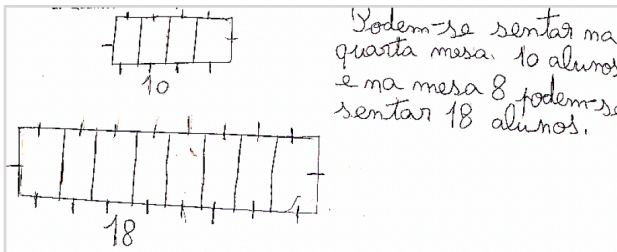 10
Podem-se sentar na
quarta mesa. 10 alunos
e na mesa 8 podem-se
sentar 18 alunos.
18